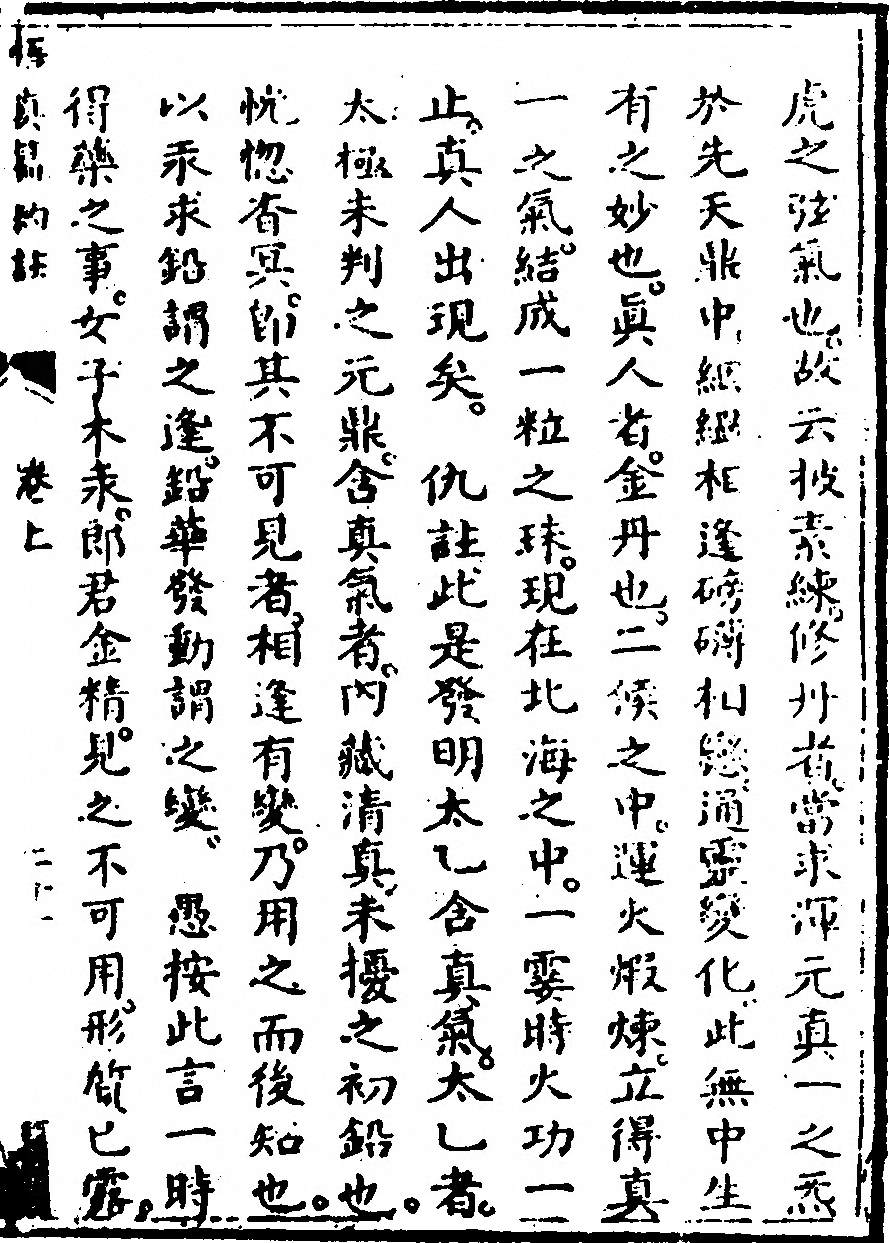 虎之弦氣也。故云披素練。修丹者。當求渾元真一之炁
於先天鼎中。絪縕相逢。磅礴相戀。通靈變化。此無中生
有之妙也。眞人者。金丹也。二候之中。運火煆煉。立得真
一之氣。結成一粒之珠。現在北海之中。一霎時火功一
止。真人出現矣。 仇註此是發明太乙含真氣。太乙者。
太極未判之元鼎。含真氣者。內藏清真。未擾之初鉛也。
恍惚杳冥。卽其不可見者。相逢有變。乃用之而後知也。
以汞求鉛謂之逢。鉛華發動謂之變。 愚按此言一時
得藥之事。女子木汞。郎君金精。見之不可用。形質已露。
悟真篇約註 卷上 二十一